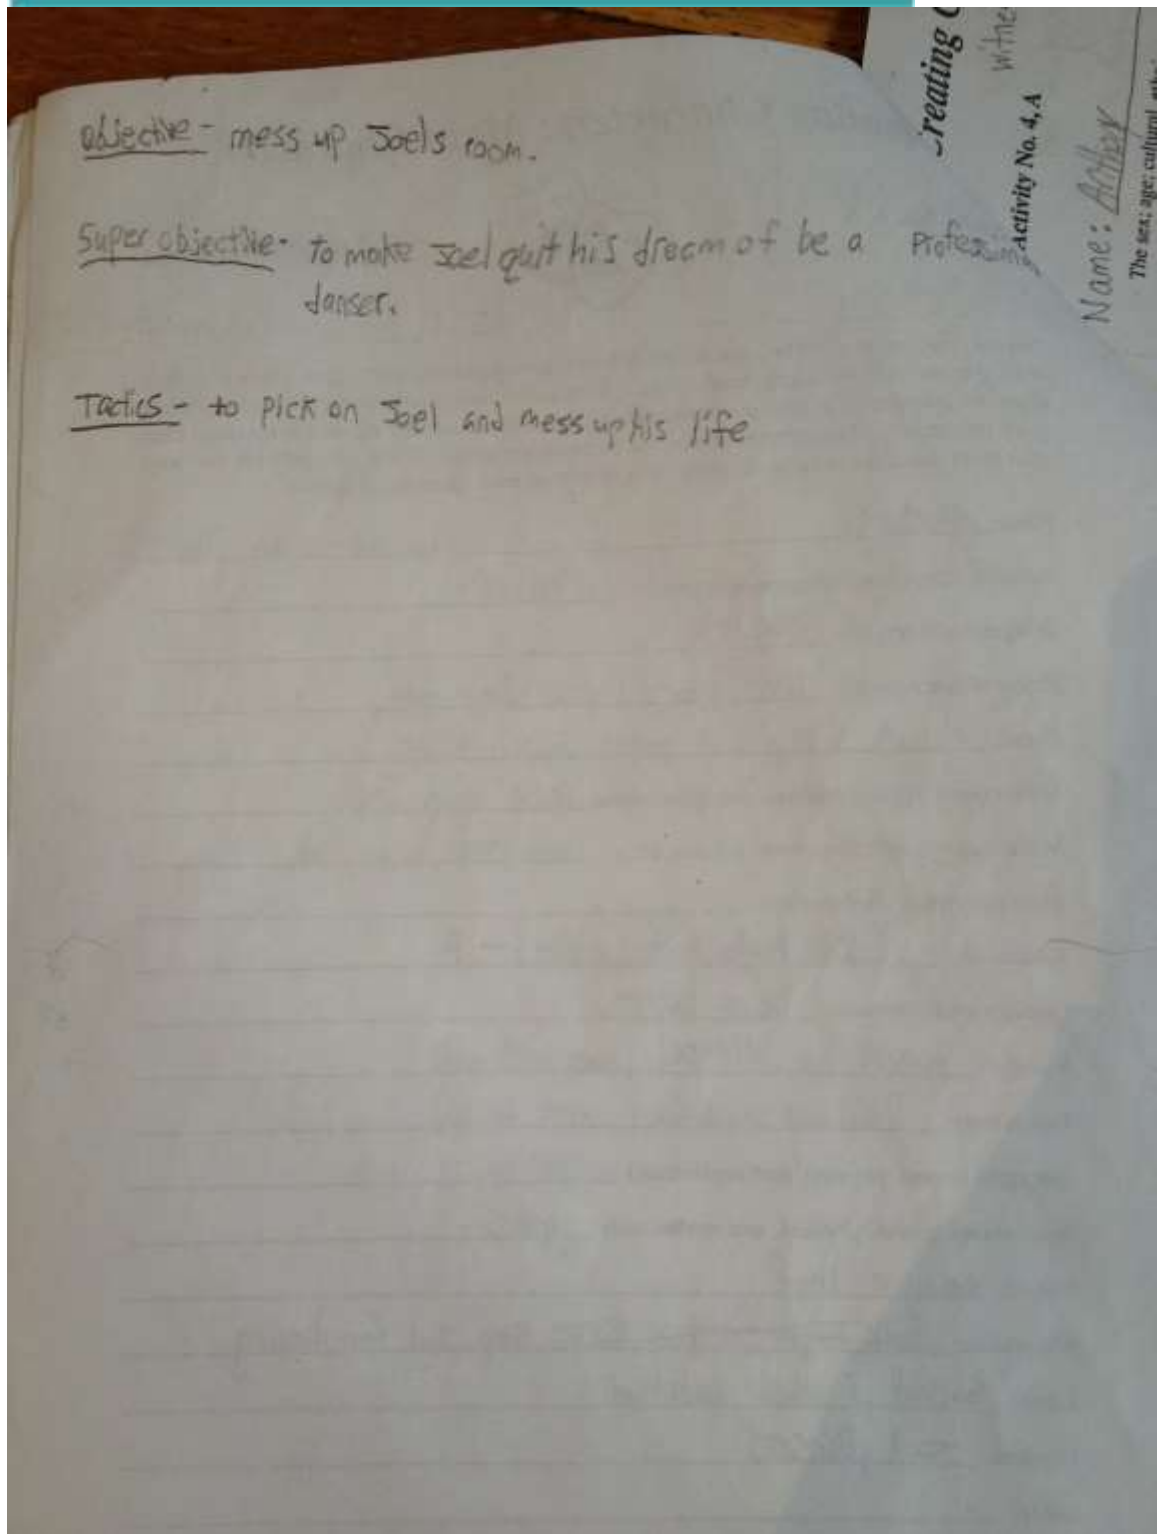 Objective - mess up Joels room.
Super objective - to make Joel quit his dream of be a Profession
danser.
Tactics - to pick on Joel and mess up his life
reating C
Witne
Activity No. 4, A
Name:
The sex; age; cultural, ethni